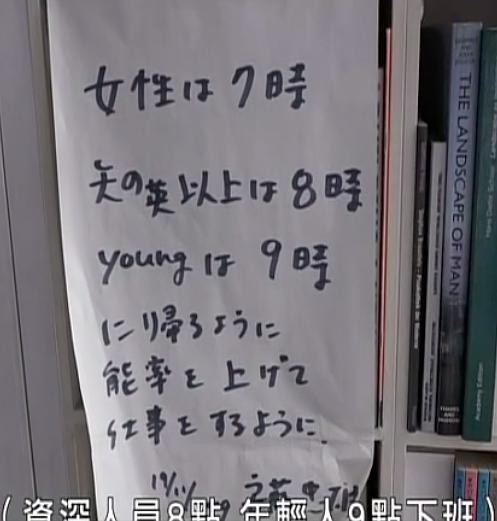 女性は7時
の英以上は8時
youngは9時
に帰るように
能率を上げて
仕事をするように
THE LANDSCAPE OF MAN
THAMES AND HUDSON
（資深人員8點 年輕人9點下班）